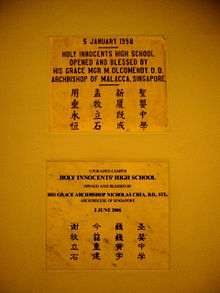 5 JANUARY 1958
HOLY INNOCENTS HIGH SCHOOL
OPENED AND BLESSED BY
HIS GRACE MGR M. OLCOMENDY. D. D.
ARCHBISHOP OF MALACCA, SINGAPORE.
聖嬰中學
新廈既成
孟牧立石
用垂永恒
UPGRADED CAMPUS
HOLY INNOCENTS' HIGH SCHOOL
OPENED AND BLESSED BY
HIS GRACE ARCHBISHOP NICHOLAS CHIA, BD, STL
ARCHDIOCESE OF SINGAPORE
2 JUNE 2001
圣婴中学
巍巍黉宇
今重建
谢牧立石